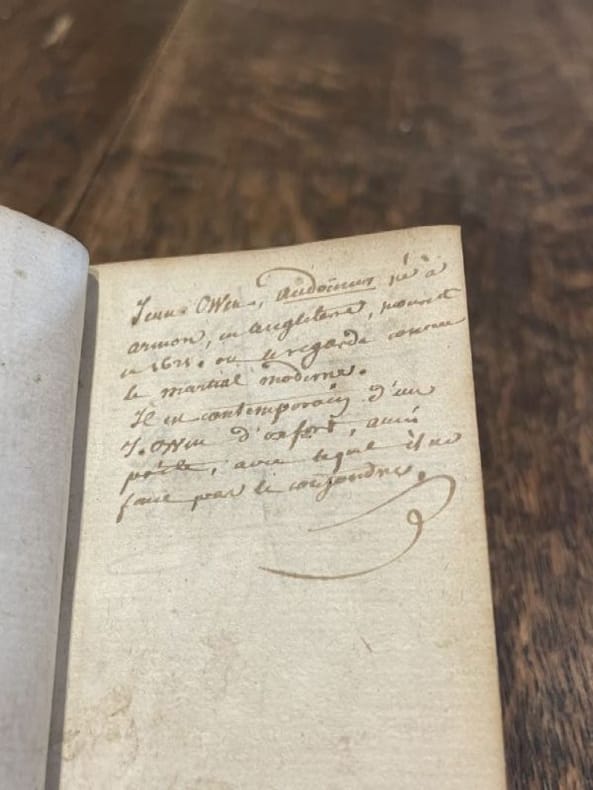 Jean Owen, audoënus né à
armon, en angleterre, mourut
en 1622. on le regarde comme
le martial moderne.
Il est contemporain d'un
J. Owen d'oxfort, aussi
poëte, avec lequel il ne
faut pas le confondre.